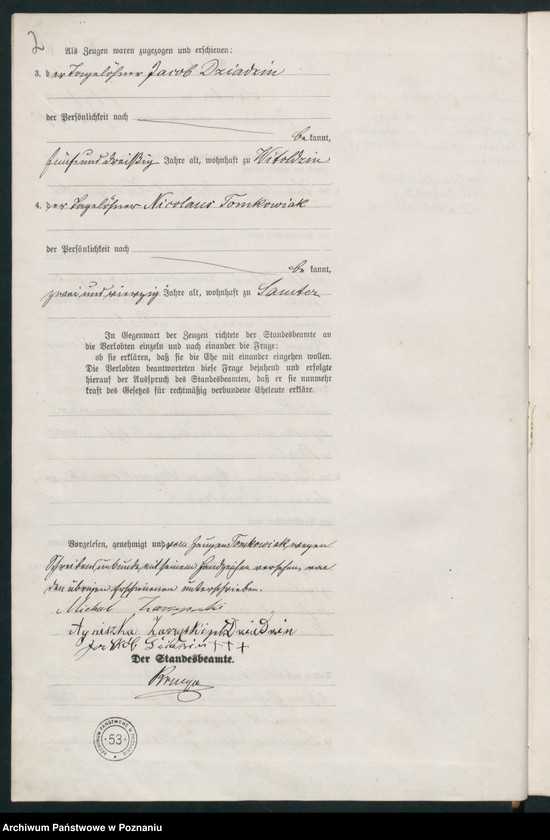 2
Als Zeugen waren zugezogen und erschienen:
3. der Tagelöhner Jacob Dziadzin
der Persönlichkeit nach
be kannt,
fünfunddreißig Jahre alt, wohnhaft zu Witoldzin
4. der Tagelöhner Nicolaus Tomkowiak
der Persönlichkeit nach
be kannt,
zweiundvierzig Jahre alt, wohnhaft zu Samter
In Gegenwart der Zeugen richtete der Standesbeamte an
die Verlobten einzeln und nach einander die Frage:
ob sie erklären, daß sie die Ehe mit einander eingehen wollen.
Die Verlobten beantworteten diese Frage bejahend und erfolgte
hierauf der Ausspruch des Standesbeamten, daß er sie nunmehr
kraft des Gesetzes für rechtmäßig verbundene Eheleute erkläre.
Vorgelesen, genehmigt und vom Zeugen Tomkowiak wegen
Schreibensunkunde mit seinem Handzeichen versehen, von
den übrigen Erschienenen unterschrieben.
Michał
Agnieszka
+++
Der Standesbeamte.
ARCHIWUM PAŃSTWOWE W POZNANIU
53
Archiwum Państwowe w Poznaniu